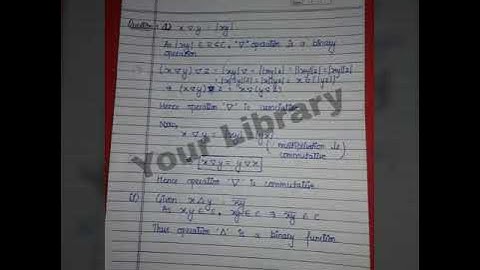 Question: d) x ∇ y = |xy|
As |xy| ∈ R ⊂ C, "∇" operation is a binary
operation
(x ∇ y) ∇ z = |xy| ∇ z = ||xy|z| = |xy||z|
= |x||yz| = x ∇ (|yz|)
⇒ (x ∇ y) ∇ z = x ∇ (y ∇ z)
Hence operation '∇' is
Now,
x ∇ y = |xy| = |yx|
( multiplication is
commutative )
x ∇ y = y ∇ x
Hence operation '∇' is commutative
Given x Δ y = xy
As x, y ∈ C, xy ∈ C ⇒ xy ∈ C
Thus operation 'Δ' is a binary function
Your Library